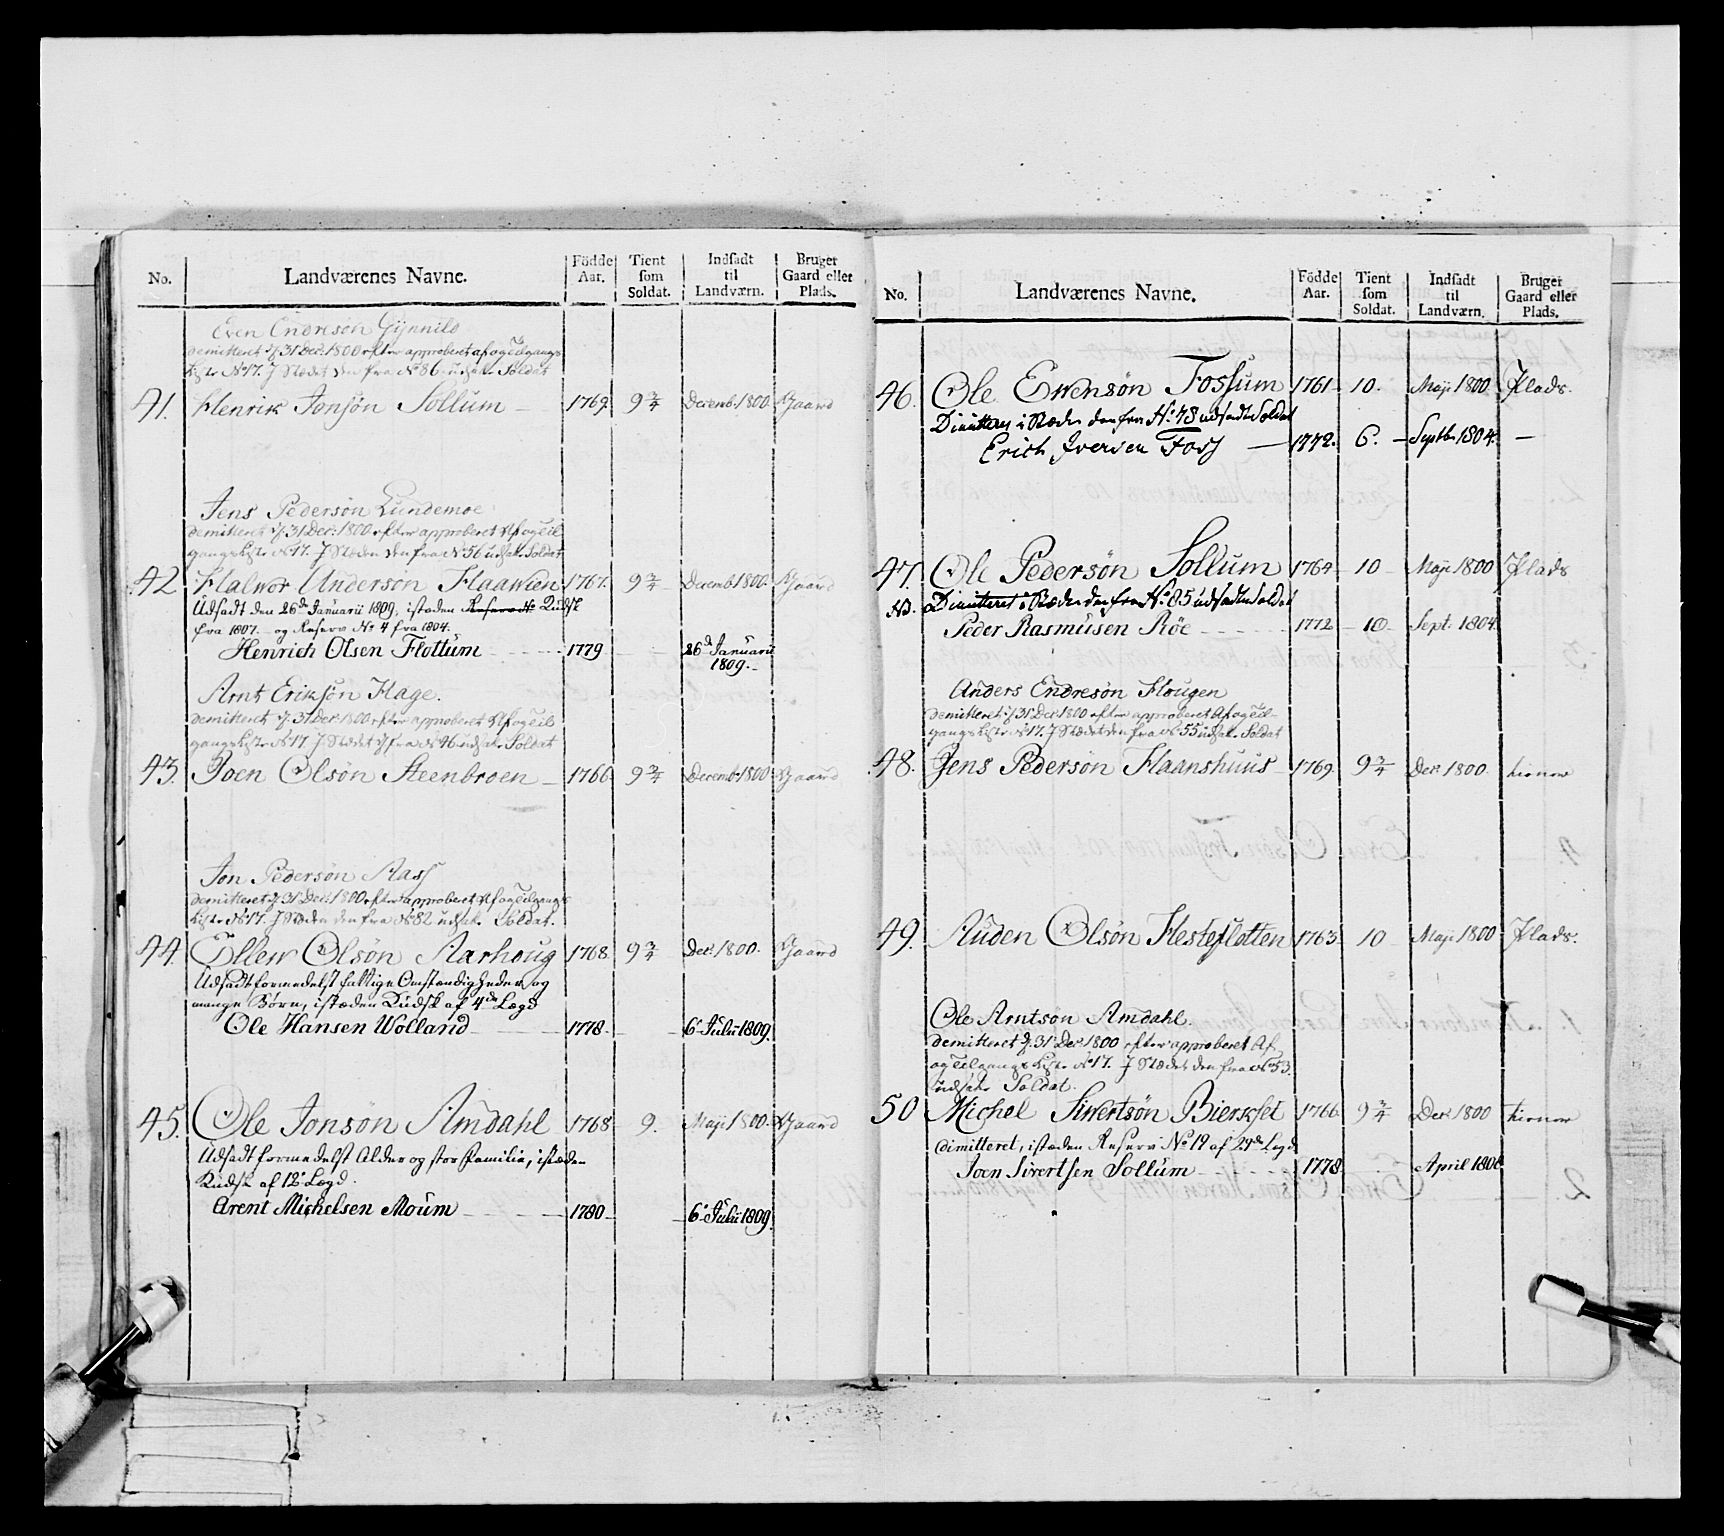 No. Landværenes Navne. Födde Aar. Tient som Soldat. Indsadt til Landværn. Bruger Gaard eller Plads.
Even Endresön Gynnild
demitteret d. 31 Decr: 1800 efter approberet af og tilgangs
Liste No 17. I Stædet den fra No 86 udsatte Soldat
41. Henrik Jonsön Sollum 1769. 9 3/4 Decemb. 1800 Gaard
Jens Pedersön Lundemoe
demitteret d. 31 Decr: 1800 efter approberet Af og til
gangs Liste No 17. I Stæden den fra No 56 udsatte Soldat
42 Halvor Andersön Haawien 1767. 9 3/4 Decemb. 1800. Gaard
Udsadt den 26de Januarii 1809, istæden Reserve No Kudsk
fra 1807. og Reserv No 4 fra 1804.
Henrich Olsen Flottum 1779 26de Januarii
1809.
Arnt Eriksön Hage.
demitteret d. 31 Decr 1800 efter approberet Af og til
gangs Liste No 17. I Stædet d. fra No 46 udsatte Soldat
43. Joen Olsön Steenbroen 1766 9 3/4 Decemb. 1800 Gaard
Jon Pedersön Aass
demitteret d. 31 Decr: 1800 efter approberet Af og tilgangs
Liste No 17. I Stæden den fra No 82 udsatte Soldat.
44. Ellev Olsön Aarhoug 1768 9 3/4 Decr 1800. Gaard
Udsadt formedelst fattige Omstændigheder og
mange Börn, istæden Kudsk af 4de Lægd
Ole Hansen Wolland 1778 6te Julii 1809.
45. Ole Jonsön Amdahl 1768 9. Maji 1800. Gaard
Udsadt formedelst Alder og stor Familie, istæden
Kudsk af 12te Lægd.
Arent Mickelsen Moum 1780 6te Julii 1809.
No. Landværenes Navne. Födde Aar. Tient som Soldat. Indsadt til Landværn. Bruger Gaard eller Plads.
46. Ole Evensön Fossum 1761 10. Maji 1800 Plads.
Dimitteres i Stæden den fra No 78 udsadte Soldat
Erich Iversen Foss 1772. 6. Septb. 1804.
47. Ole Pedersön Sollum 1764 10 Maji 1800 Plads
NB. Dimitteret i Stæden den fra No 85 udsadte Soldat
Peder Rasmusen Röe 1772 10 Sept. 1804
Anders Endresön Hougen
demitteret d. 31 Decr 1800 efter approberet Af og til
gangs Liste No 17. I Stædet den fra No 55 udsatte Soldat
48. Jens Pedersön Haanshuus 1769. 9 3/4 Decr 1800.
49. Auden Olsön Hesteflotten 1763 10 Maji 1800 Plads.
Ole Arntsön Amdahl.
demitteret d. 31 Decr 1800 efter approberet Af
og tilgangs Liste No 17. I Stædet den fra No 53.
udsatte Soldat.
50 Michel Sivertsön Bierkset 1766 9 3/4 Decr 1800
Dimitteret, istæden Reserv No 19 af 24de Lægd
Joen Sivertsen Sollum 1778 April 1806